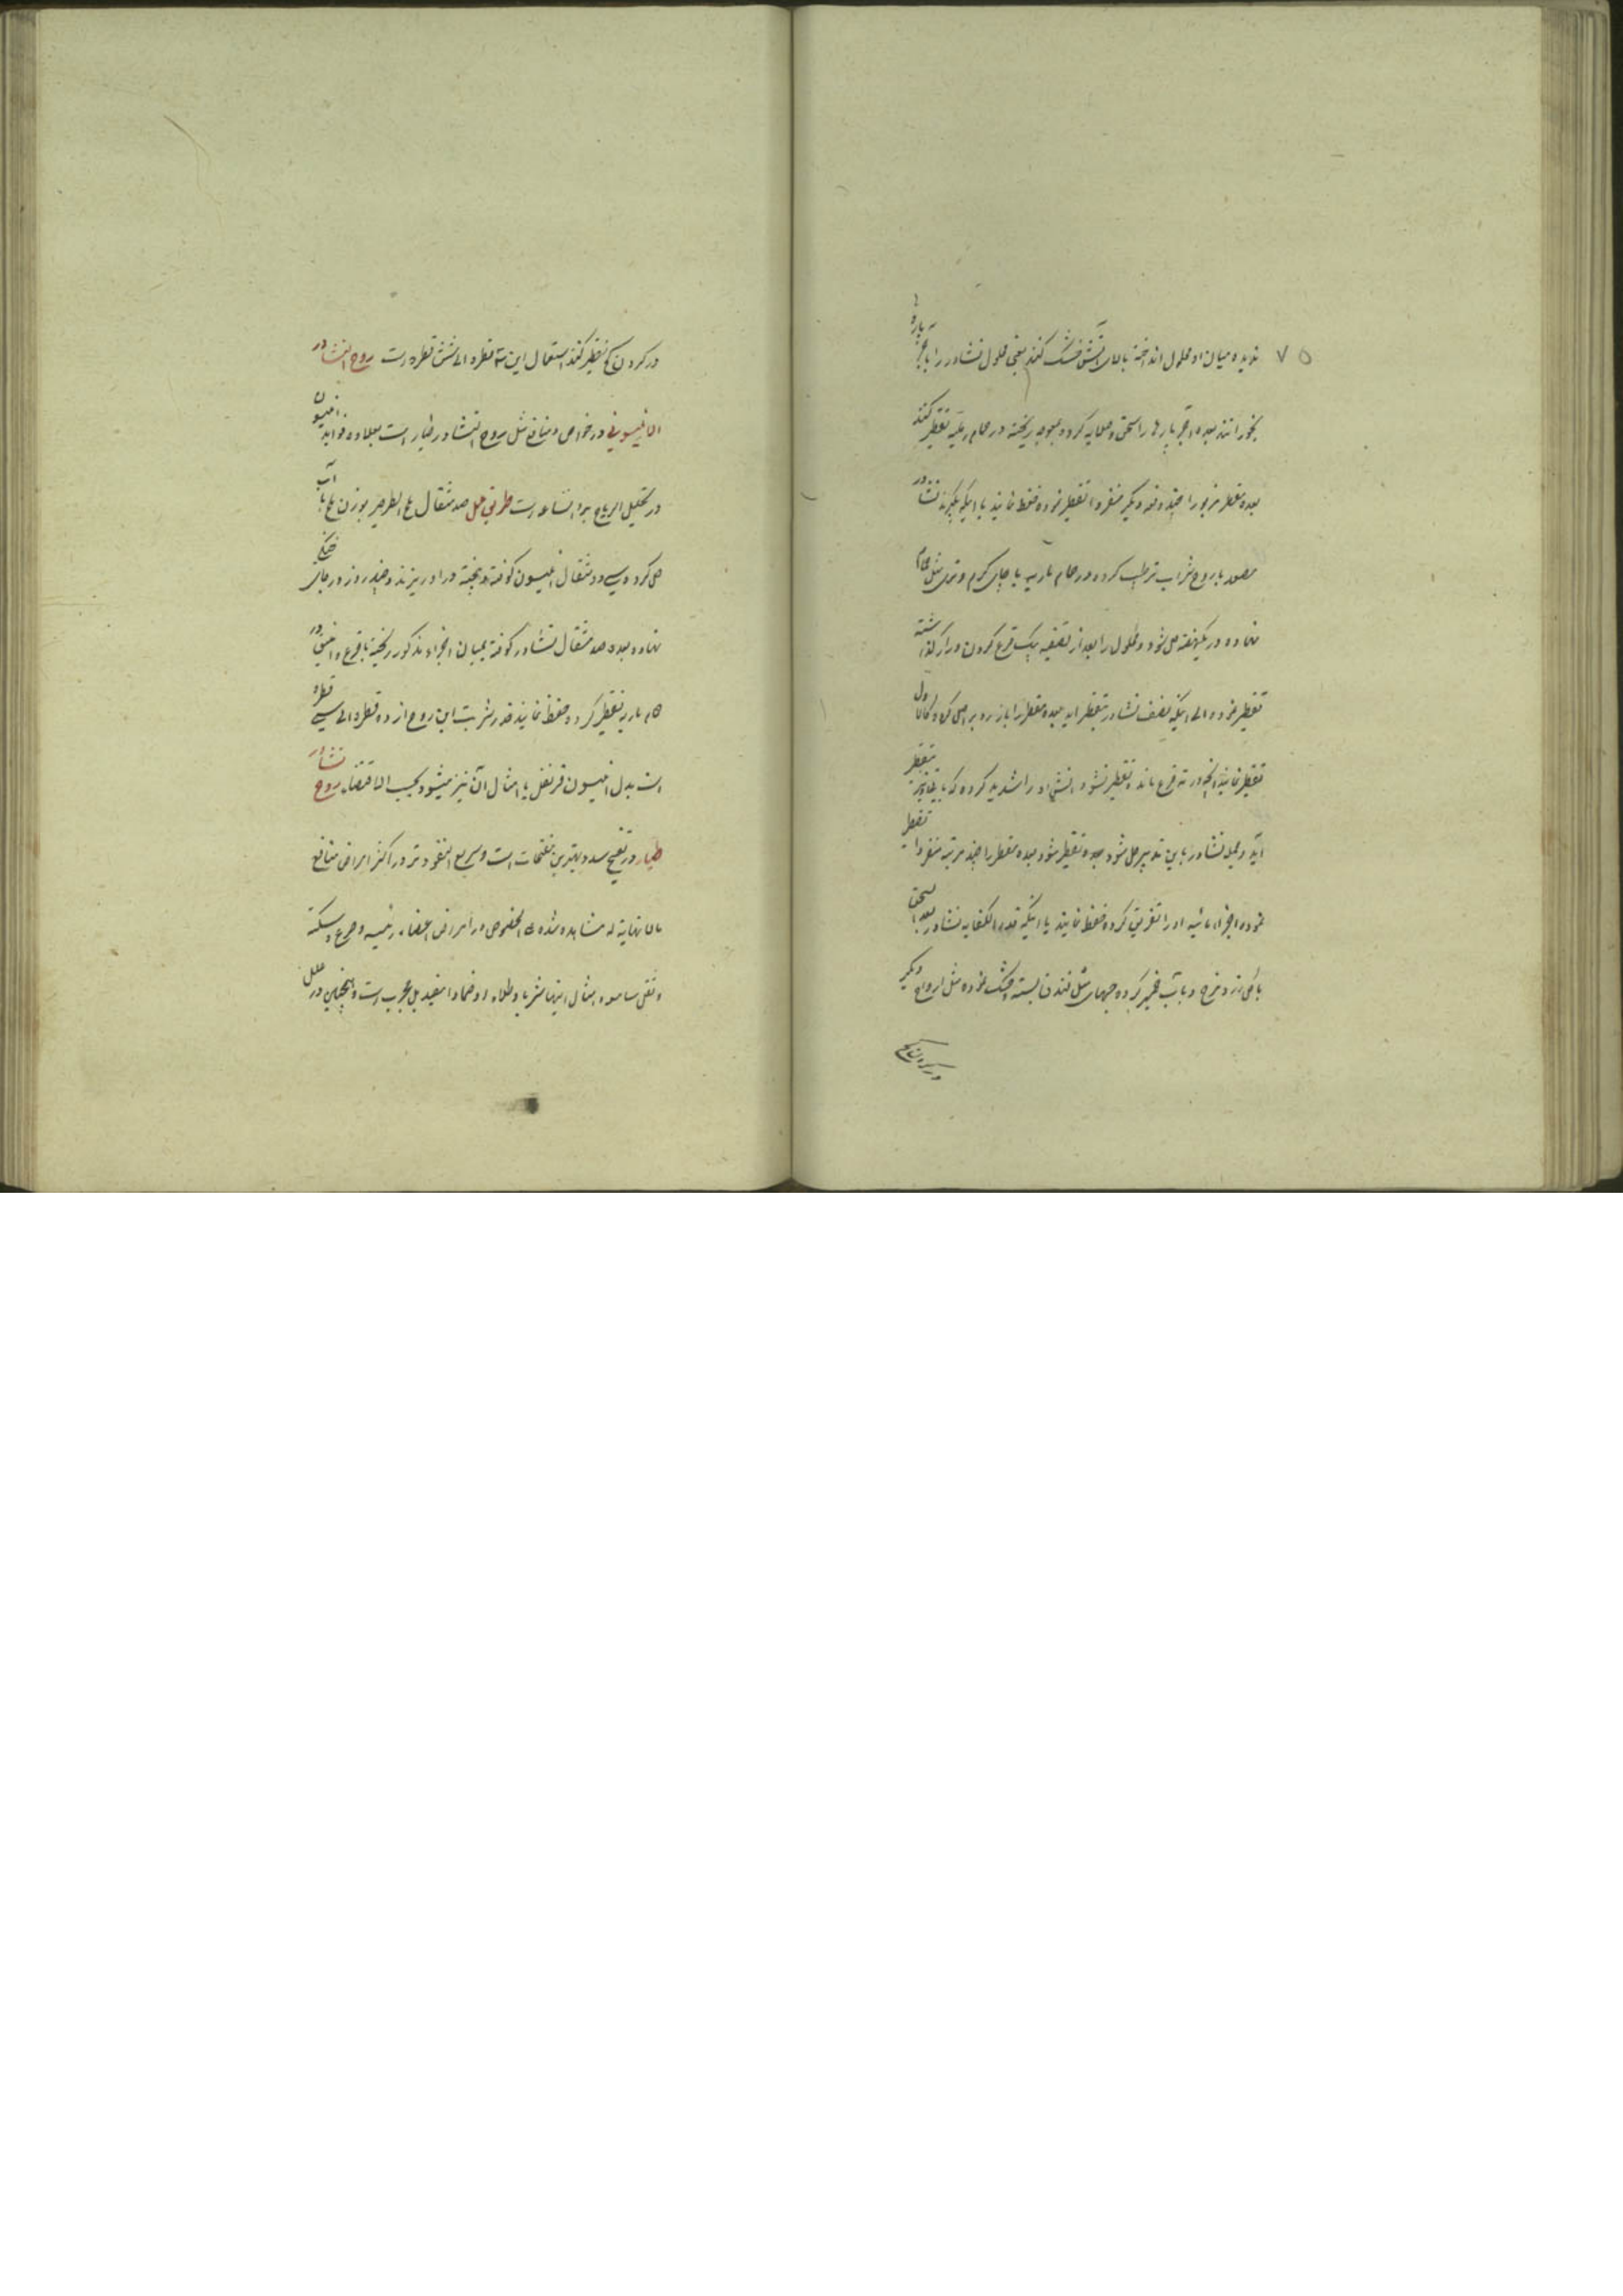 ندیده میان او محلول انداخته بالای آتش خشک کنند یعنی محلول نشادر را با آجر پاره ها
بخورانند بعده آجر پارها را سحق و صلایه کرده بعوجه ریخته در حمام تقطیر کنند
بعده مقطر مزبور را چند دفعه دیگر منفردا تقطیر نموده حفظ نمایند یا اینکه بگیرند نشادر
مصعد با روح شراب ترطیب کرده در حمام ماریه یا جای گرم و تری مثل حمام
نهاده در یکهفته حل شود و محلول را بعد از تصفیه بیک قرع کردن دراز گذاشته
تقطیر نموده الی اینکه نصف نشادر بتقطیر آید بعده مقطر را باز رو بر اصل کرده کالاول
تقطیر نمایند آنچه در ته قرع ماند و تقطیر نشود آتش او را شدید کرده که بتقطیر
آید و جمله نشادر باین تدبیر حل شود بعده تقطیر شود بعده مقطر را چند مرتبه منفردا تقطیر
نموده اجزاء مائیه او را تفریق کرده حفظ نمایند یا اینکه قدر الکفایه نشادر بعد السحق
و بآب خمیر کرده حبهای مثل فندق بسته خشک نموده مثل ارواح دیگر
در کردن کج
در کردن کج تقطیر کنند استعمال این سه قطره الی شش قطره است روح النشادر
الانیسونی در خواص و منافع مثل روح النشادر طیار است بعلاوه فواید انیسون
در تحلیل الریاح طریق عمل صد مثقال ملح الطرطیر بوزن با آب
حل کرده و سی و دو مثقال انیسون کوفته و بیخته در او ریزند و چند روز در جای خنک
نهاده و بعده صد مثقال نشادر کوفته بمیان اجزاء مذکور ریخته با قرع و انبیق در
حمام ماریه تقطیر کرده حفظ نمایند قدر شربت این روح از ده قطره الی سی قطره
است بدل انیسون قرنفل یا امثال آن نیز میشود بحسب الاقتضاء روح نشادر
طیار در تفتیح سدد بهترین مفتحات است و سریع النفوذتر در اکثر امراض منافع
بالانهایة له مشاهده شده علی الخصوص در امراض اعضاء رئیسه و صرع و سکته
و ثقل سامعه و امثال اینها شربا و طلاء و ضمادا مفید بل مجرب است و همچنین در علل